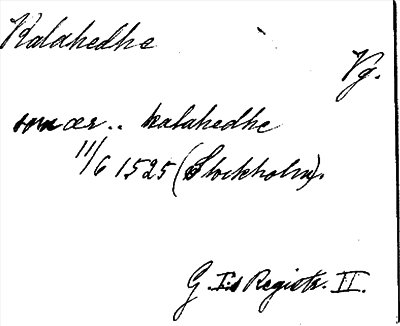 Kalahedhe
Vg.
som ær .. kalahedhe
11/6 1525 (Stockholm).
G. I:s Registr. II.